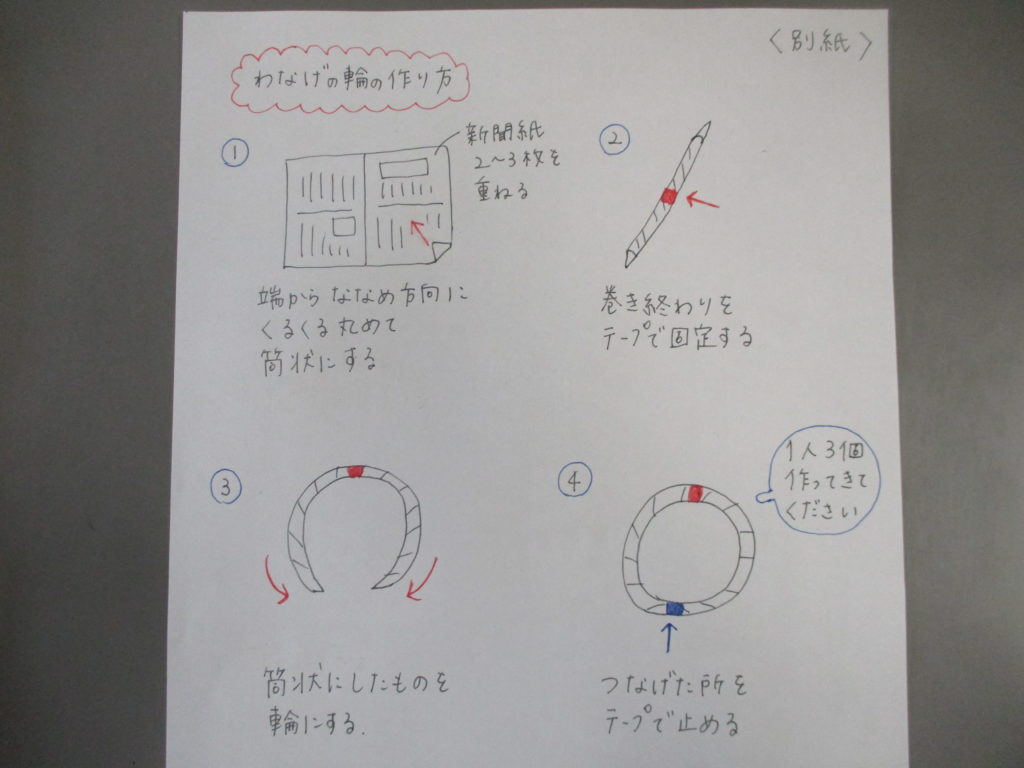 〈別紙〉
わなげの輪の作り方
①
新聞紙
2〜3枚を
重ねる
端からななめ方向に
くるくる丸めて
筒状にする
②
巻き終わりを
テープで固定する
③
筒状にしたものを
輪にする.
④
1人3個
作ってきて
ください
つなげた所を
テープで止める